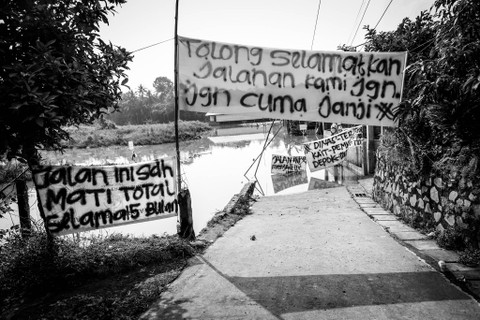 Tolong Selamatkan
Jalanan kami Jgn.
Jgn cuma Janji
Jalan ini sdh
MATI TOTAL
Selama 15 Bulan
DINAS-TE
KAIT-PEMKOT
DEPOK
JALAN